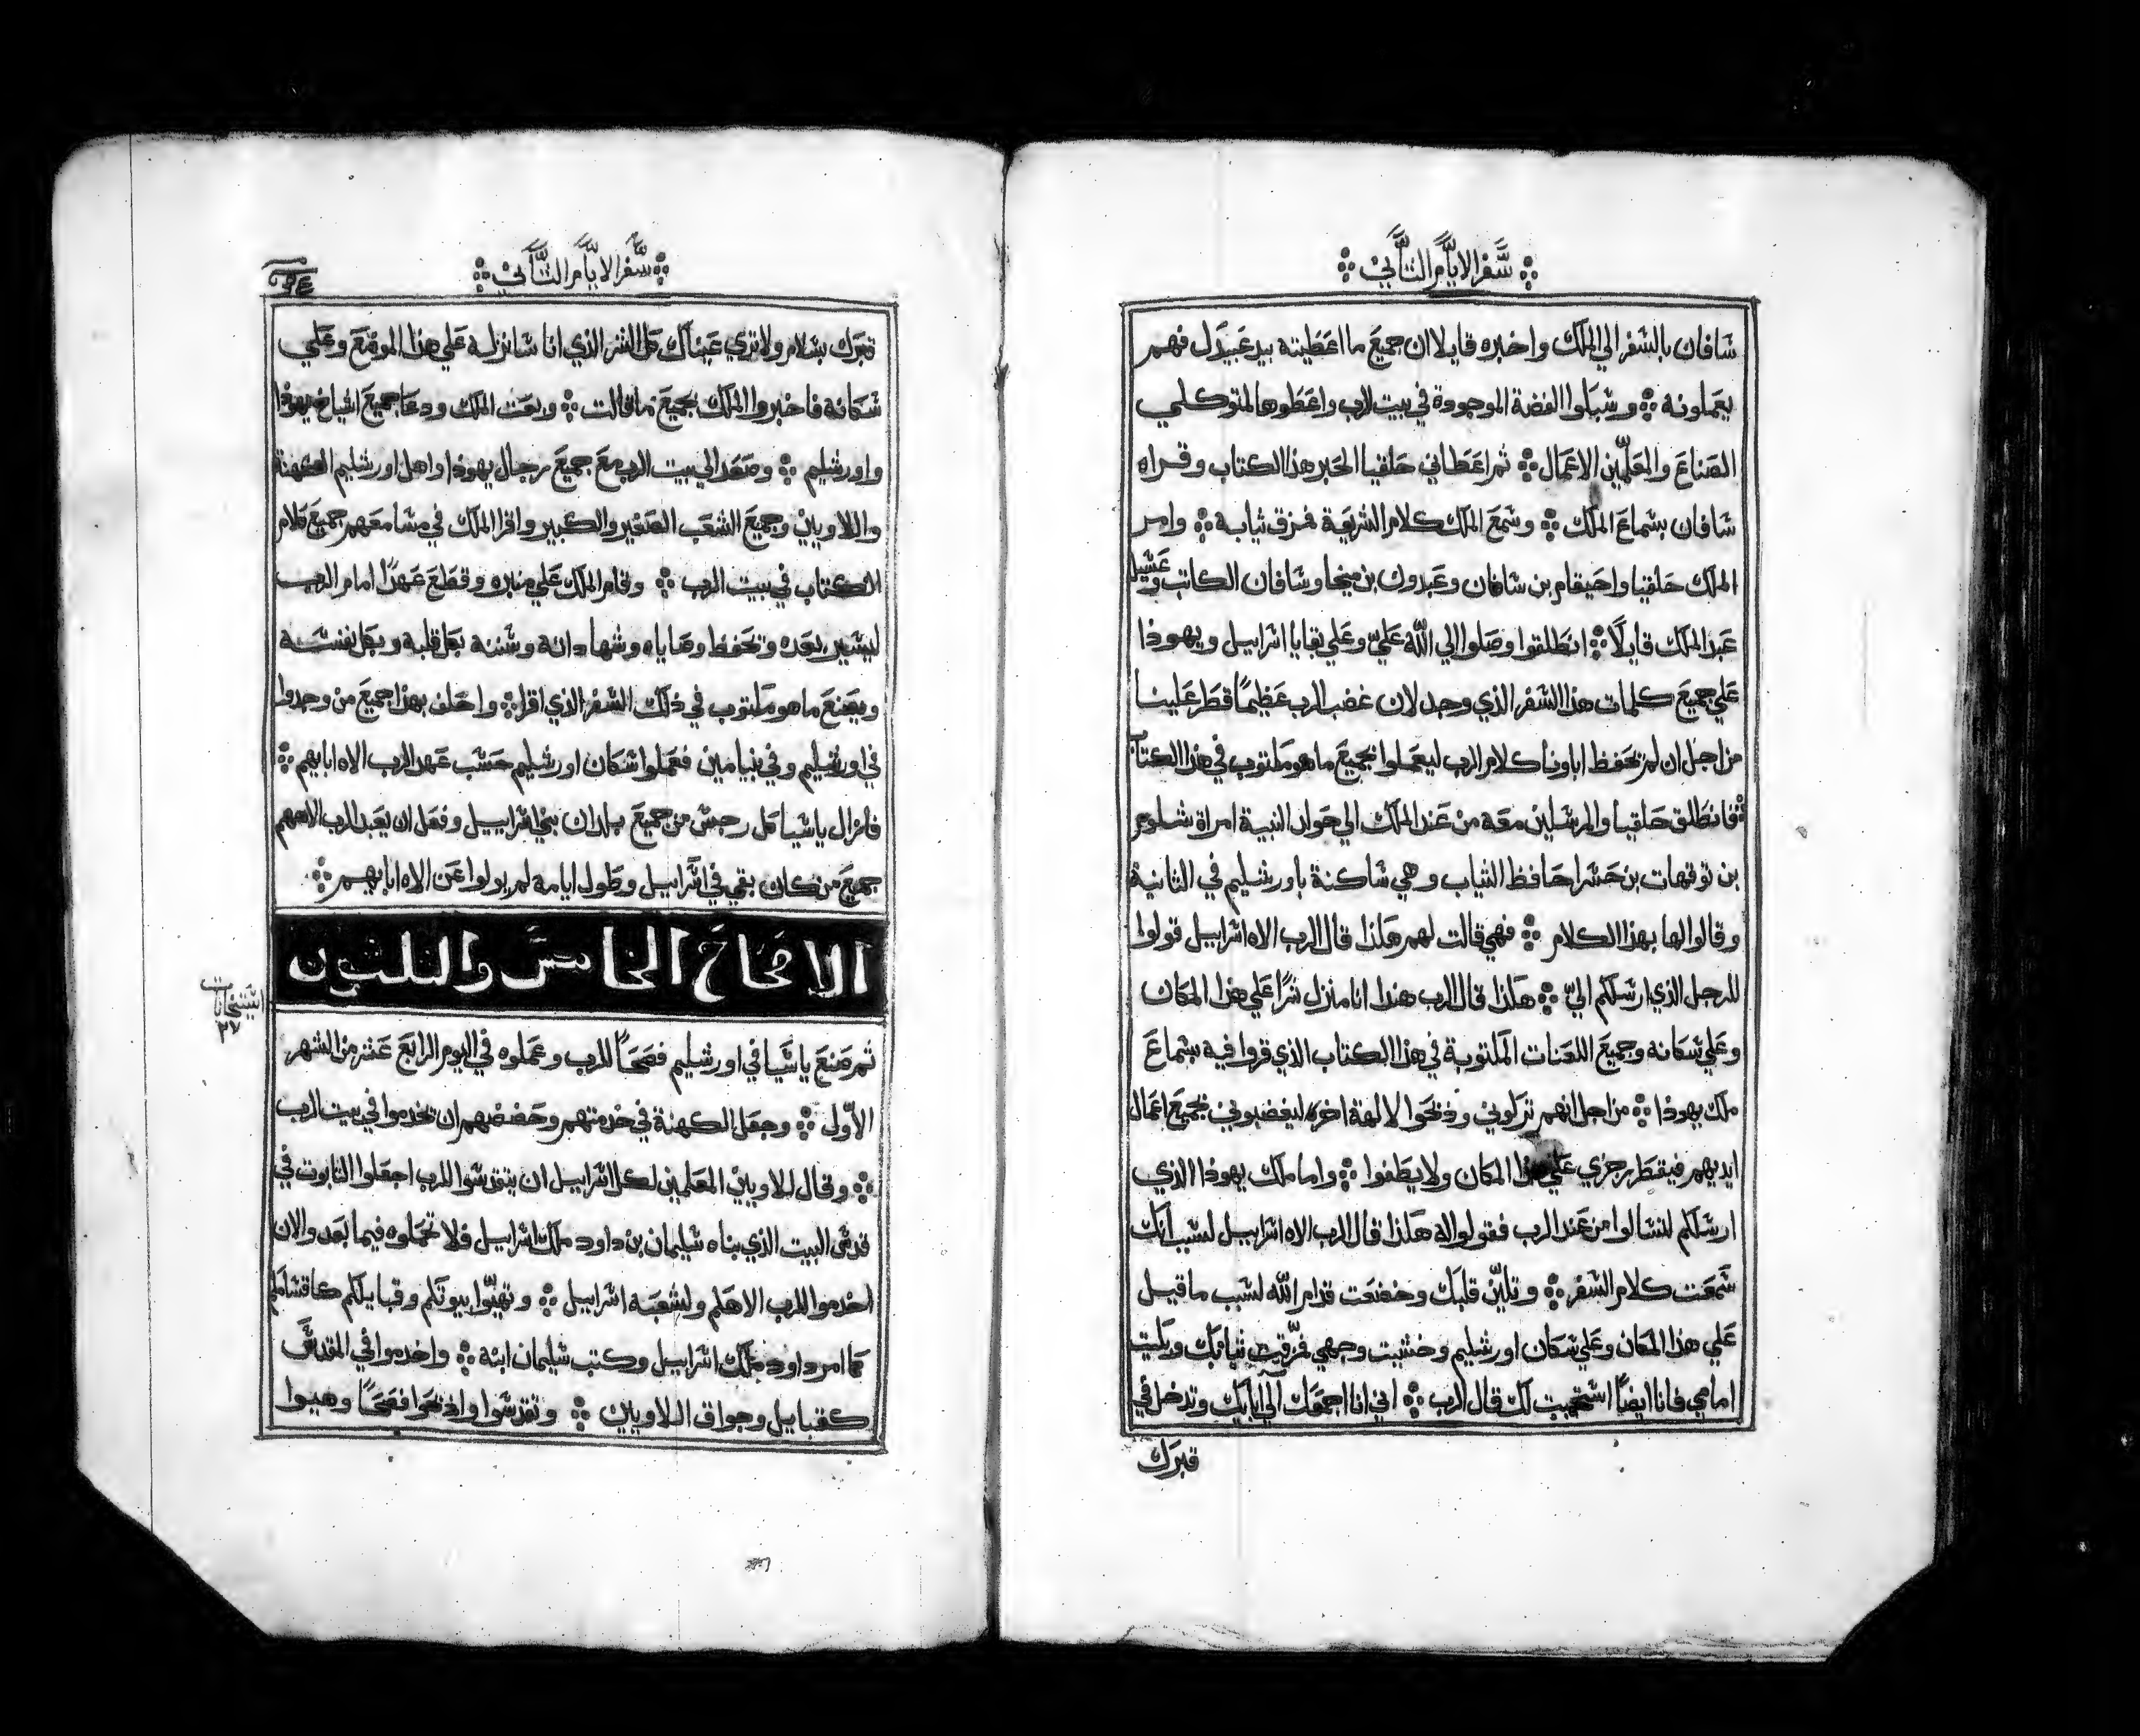 سفر الايام الثاني
شافان بالشفر الي الملك واخبره قايلا ان جميع ما اعطيته بيد عبيدك فهم
يعملونه وشبلوا الفضة الموجودة في بيت الرب واعطوها لمتوكلي
الصناع والمعلمين الاعمال ثم اعطاني حلقيا الحبر هذا الكتاب وقراه
شافان بشماع الملك وشمع الملك كلام الشريعة فمزق ثيابه وامر
الملك حلقيا واحيقام بن شافان وعبدوك بن ميخا وشافان الكاتب
عبد الملك قايلا انطلقوا وصلوا الي الله علي وعلي بقايا اشراييل ويهوذا
علي جميع كلمات هذا الشفر الذي وجد لان غضب الرب عظيمًا قطر علينا
من اجل ان لم تحفظ اباونا كلام الرب ليعملوا بجميع ما هو مكتوب في هذا الكتاب
فانطلق حلقيا والمرشلين معه من عند الملك الي حولد النبية امراة شلوم
بن توقهات بن حشرا حافظ الثياب وهي شاكنة باورشليم في الثانية
وقالوا لها بهذا الكلام فهي قالت لهم هكذا قال الرب الاه اشراييل قولوا
للرجل الذي ارشلكم الي هكذا قال الرب هندا انا منزل شرًا علي هذا المكان
وعلي شكانه وجميع اللعنات المكتوبة في هذا الكتاب الذي قروا فيه بشماع
ملك يهوذا من اجل انهم تركوني وذبحوا لالهة اخره ليغضبوني بجميع اعمال
ايديهم فيقطر رجزي علي هذا المكان ولا يطفوا واما ملك يهوذا الذي
ارشلكم لتشالوا من عند الرب فقولوا له هكذا قال الرب الاه اشراييل لشبب انك
شمعت كلام الشفر وتلين قلبك وخضعت قدام الله لشبب ما قيل
علي هذا المكان وعلي شكان اورشليم وخشيت وجهي فمزقت ثيابك وبكيت
امامي فانا ايضًا اشتجبت لك قال الرب اني انا اجمعك الي ابايك وتدخل في
قبرك
سفر الايام الثاني
قبرك بشلام ولا تري عيناك كل الشر الذي انا شانزله علي هذا الموضع وعلي
شكانه فاخبروا الملك بجميع ما قالت وبعث الملك ودعا جميع اشياخ يهوذا
واورشليم وصعد الي بيت الرب مع جميع رجال يهوذا واهل اورشليم الكهنة
واللاويين وجميع الشعب الصغير والكبير واقرا الملك في مشامعهم جميع كلام
الكتاب في بيت الرب وقام الملك علي منبره وقطع عهدًا امام الرب
ليشير بعده وتحفظ وصاياه وشهاداته وشننه بكل قلبه وبكل نفشه
ويصنع ما هو مكتوب في ذلك الشفر الذي اقرا واحلف بهذا جميع من وجدوا
في اورشليم وفي بنيامين فعملوا شكان اورشليم حشب عهد الرب الاه ابايهم
فازال ياشيا كل رجش من جميع بلدان بني اشراييل وفعل ان يعبد الرب الاههم
جميع من كان بقي في اشراييل وطول ايامه لم يزولوا عن الاه ابايهم
الاصحاح الخامس والثلثون
ثم صنع ياشيا في اورشليم فصحًا للرب وعملوه في اليوم الرابع عشر من الشهر
الاول وجعل الكهنة في خدمتهم وحضضهم ان يخدموا في بيت الرب
وقال للاويين المعلمين لكل اشراييل ان يتقدشوا للرب اجعلوا التابوت في
قدش البيت الذي بناه شليمان بن داود ملك اشراييل فلا تحملوه فيما بعد والان
اخدموا للرب الاهكم ولشعبه اشراييل وتهيوا بيوتكم وقبايلكم كاقشامكم
كما امر داود ملك اشراييل وكتب شليمان ابنه واخدموا في المقدش
كقبايل وجواق اللاويين وتقدشوا واذبحوا فصحًا وهيوا